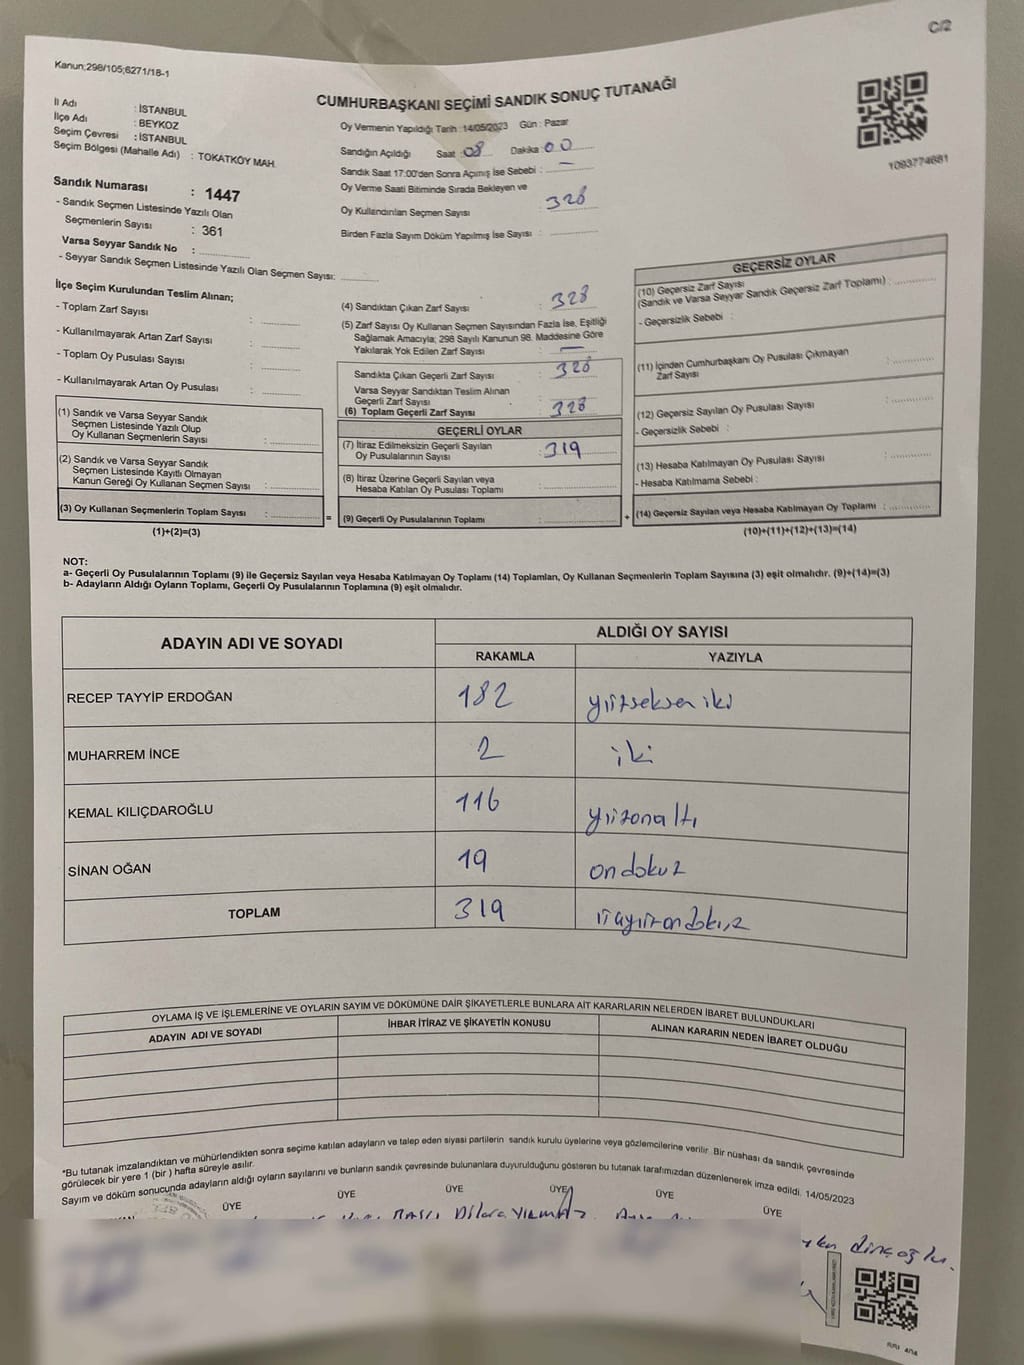 C/2
Kanun;298/105;6271/18-1
CUMHURBAŞKANI SEÇİMİ SANDIK SONUÇ TUTANAĞI
İl Adı : İSTANBUL
İlçe Adı : BEYKOZ
Seçim Çevresi : İSTANBUL
Seçim Bölgesi (Mahalle Adı) : TOKATKÖY MAH.
Sandık Numarası : 1447
- Sandık Seçmen Listesinde Yazılı Olan
Seçmenlerin Sayısı : 361
Varsa Seyyar Sandık No :
- Seyyar Sandık Seçmen Listesinde Yazılı Olan Seçmen Sayısı:
Oy Vermenin Yapıldığı Tarih :14/05/2023 Gün : Pazar
Sandığın Açıldığı Saat :08 Dakika :00
Sandık Saat 17:00'den Sonra Açımış İse Sebebi : —
Oy Verme Saati Bitiminde Sırada Bekleyen ve
Oy Kullandırılan Seçmen Sayısı : 328
Birden Fazla Sayım Döküm Yapılmış İse Sayısı :
1093774681
İlçe Seçim Kurulundan Teslim Alınan;
- Toplam Zarf Sayısı :
- Kullanılmayarak Artan Zarf Sayısı :
- Toplam Oy Pusulası Sayısı :
- Kullanılmayarak Artan Oy Pusulası :
(1) Sandık ve Varsa Seyyar Sandık
Seçmen Listesinde Yazılı Olup
Oy Kullanan Seçmenlerin Sayısı :
(2) Sandık ve Varsa Seyyar Sandık
Seçmen Listesinde Kayıtlı Olmayan
Kanun Gereği Oy Kullanan Seçmen Sayısı :
(3) Oy Kullanan Seçmenlerin Toplam Sayısı :
(1)+(2)=(3)
(4) Sandıktan Çıkan Zarf Sayısı : 328
(5) Zarf Sayısı Oy Kullanan Seçmen Sayısından Fazla İse, Eşitliği
Sağlamak Amacıyla; 298 Sayılı Kanunun 98. Maddesine Göre
Yakılarak Yok Edilen Zarf Sayısı : —
Sandıkta Çıkan Geçerli Zarf Sayısı : 328
Varsa Seyyar Sandıktan Teslim Alınan
Geçerli Zarf Sayısı :
(6) Toplam Geçerli Zarf Sayısı : 328
GEÇERLİ OYLAR
(7) İtiraz Edilmeksizin Geçerli Sayılan
Oy Pusulalarının Sayısı : 319
(8) İtiraz Üzerine Geçerli Sayılan veya
Hesaba Katılan Oy Pusulası Toplamı :
= (9) Geçerli Oy Pusulalarının Toplamı : +
GEÇERSİZ OYLAR
(10) Geçersiz Zarf Sayısı
(Sandık ve Varsa Seyyar Sandık Geçersiz Zarf Toplamı) :
- Geçersizlik Sebebi :
(11) İçinden Cumhurbaşkanı Oy Pusulası Çıkmayan
Zarf Sayısı :
(12) Geçersiz Sayılan Oy Pusulası Sayısı :
- Geçersizlik Sebebi :
(13) Hesaba Katılmayan Oy Pusulası Sayısı :
- Hesaba Katılmama Sebebi :
(14) Geçersiz Sayılan veya Hesaba Katılmayan Oy Toplamı :
(10)+(11)+(12)+(13)=(14)
NOT:
a- Geçerli Oy Pusulalarının Toplamı (9) ile Geçersiz Sayılan veya Hesaba Katılmayan Oy Toplamı (14) Toplamları, Oy Kullanan Seçmenlerin Toplam Sayısına (3) eşit olmalıdır. (9)+(14)=(3)
b- Adayların Aldığı Oyların Toplamı, Geçerli Oy Pusulalarının Toplamına (9) eşit olmalıdır.
ADAYIN ADI VE SOYADI ALDIĞI OY SAYISI
RAKAMLA YAZIYLA
RECEP TAYYİP ERDOĞAN 182 yüzseksen iki
MUHARREM İNCE 2 iki
KEMAL KILIÇDAROĞLU 116 yüzonaltı
SİNAN OĞAN 19 ondokuz
TOPLAM 319 üçyüzondokuz
OYLAMA İŞ VE İŞLEMLERİNE VE OYLARIN SAYIM VE DÖKÜMÜNE DAİR ŞİKAYETLERLE BUNLARA AİT KARARLARIN NELERDEN İBARET BULUNDUKLARI
ADAYIN ADI VE SOYADI İHBAR İTİRAZ VE ŞİKAYETİN KONUSU ALINAN KARARIN NEDEN İBARET OLDUĞU
*Bu tutanak imzalandıktan ve mühürlendikten sonra seçime katılan adayların ve talep eden siyasi partilerin sandık kurulu üyelerine veya gözlemcilerine verilir. Bir nüshası da sandık çevresinde
görülecek bir yere 1 (bir ) hafta süreyle asılır.
Sayım ve döküm sonucunda adayların aldığı oyların sayılarını ve bunların sandık çevresinde bulunanlara duyurulduğunu gösteren bu tutanak tarafımızdan düzenlenerek imza edildi. 14/05/2023
ÜYE ÜYE ÜYE ÜYE ÜYE ÜYE
Dilara YILMAZ